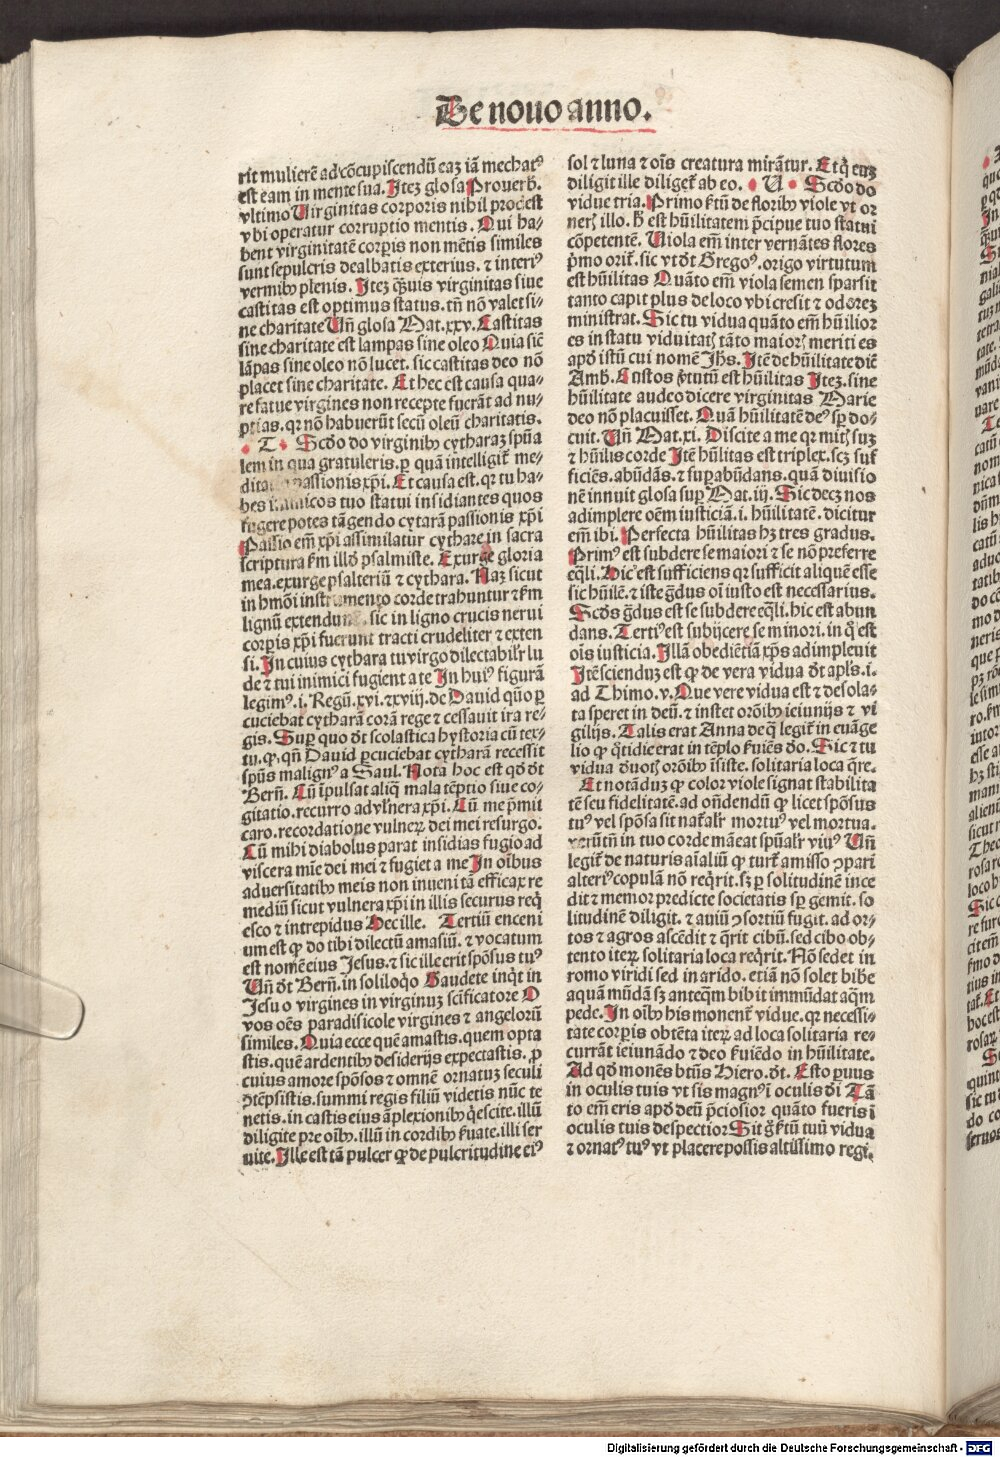 De nouo anno.
rit mulierē ad cōcupiscendū eaʒ iā mechatꝰ
est eam in mente sua. Iteʒ glosa Prouerb̄.
vltimo Uirginitas corporis nihil prodest
vbi operatur corruptio mentis. Qui ha-
bent virginitatē corp̱is non mētis similes
sunt sepulcris dealbatis exterius. ⁊ interiꝰ
vermibꝰ plenis. Iteʒ qͣ̄uis virginitas siue
castitas est optimus status. tn̄ nō valet si-
ne charitate Un̄ glosa Mat. xxv. Castitas
sine charitate est lampas sine oleo Quia sic̄
lāpas sine oleo nō lucet. sic castitas deo nō
placet sine charitate. Et hec est causa qua-
re fatue virgines non recepte fuerāt ad nu-
ptias. qꝛ nō habuerūt secū oleū charitatis.
T. Scd̄o do virginibꝰ cytharaʒ spūa
lem in qua gratuleris. ꝑ quā intelligit̄ me-
passionis xp̄i. Et causa est. qꝛ tu ha-
bes inimicos tuo statui insidiantes quos
fugere potes tāgendo cytarā passionis xp̄i
Passio em̄ xp̄i assimilatur cythare in sacra
scriptura ẜm illd̄ psalmiste. Exurge gloria
mea. exurge psalteriū ⁊ cythara. Naʒ sicut
in hmōi instrumento corde trahuntur ⁊ ẜm
lignū sic in ligno crucis nerui
corp̱is xp̄i fuerunt tracti crudeliter ⁊ exten
si. In cuius cythara tu virgo dilectabilꝛ lu
de ⁊ tui inimici fugient a te In huiꝰ figurā
legimꝰ. i. Regū. xvi. ⁊ xviij. de Dauid quō ꝑ
cuciebat cytharā corā rege ⁊ cessauit ira re-
gis. Suꝑ quo dt̄ scolastica hystoria cū tex-
tu. ꝙ. qn̄ Dauid ꝑcuciebat cytharā recessit
spūs malignꝰ a Saul. Nota hoc est qd̄ dt̄
Bern̄. Cū īpulsat aliq̄ mala tēptio siue co-
gitatio. recurro ad vlnera xp̄i. Cū me p̄mit
caro. recordatione vulneꝝ dei mei resurgo.
Cū mihi diabolus parat insidias fugio ad
viscera mīe dei mei ⁊ fugiet a me In oībus
aduersitatibꝰ meis non inueni tā efficax re
mediū sicut vulnera xp̄i in illis securus reqͥ
esco ⁊ intrepidus Hec ille. Tertiū enceni
um est ꝙ do tibi dilectū amasiū. ⁊ vocatum
est nomē eius Jesus. ⁊ sic ille erit spōsus tuꝰ
Un̄ dt̄ Bern̄. in soliloqͥo Gaudete inqͥt in
Jesu o virgines in virginuʒ scificatore O
vos oēs paradisicole virgines ⁊ angeloꝝ
similes. Quia ecce quē amastis. quem opta
stis. quē ardentibꝰ desiderijs expectastis. ꝓ
cuius amore spōsos ⁊ omnē ornatuʒ seculi
ꝯtēpsistis. summi regis filiū videtis nūc te
netis. in castis eius āplexionibꝰ qͥescite. illū
diligite pre oībꝰ. illū in cordibꝰ ẜuate. illi ser
uite. Ille est tā pulcer ꝙ de pulcritudine eiꝰ
sol ⁊ luna ⁊ oīs creatura mirātur. Et qͥ euʒ
diligit ille diliget̄ ab eo. U. Scd̄o do
vidue tria. Primo ẜtū de floribꝰ viole vt or
netꝭ illo. ꝑ h̄ est hūilitatem p̄cipue tuo statui
cōpetentē. Uiola em̄ inter vernātes flores
pͥmo orit̄. sic vt dt̄ Gregoꝰ. origo virtutum
est hūilitas Quāto em̄ viola semen sparsit
tanto capit plus de loco vbi cresit ⁊ odoreʒ
ministrat. Sic tu vidua quāto em̄ hūilior
es in statu viduitatꝭ tāto maiorꝭ meriti es
apd̄ istū cui nomē Jhs̄. Itē de hūilitate dic̄
Amb̄. Custos ꝟtutū est hūilitas Iteʒ. sine
hūilitate audeo dicere virginitas Marie
deo nō placuisset. Quā hūilitatē deꝰ sꝑ do-
cuit. Un̄ Mat. xi. Discite a me qꝛ mitꝭ suʒ
⁊ hūilis corde Itē hūlitas est triplex. scʒ suf
ficiēs. abūdās. ⁊ suꝑabūdans. quā diuisio
nē innuit glosa suꝑ Mat. iij. Sic decʒ nos
adimplere oēm iusticiā. i. hūilitatē. dicitur
em̄ ibi. Perfecta hūilitas hʒ tres gradus.
Primꝰ est subdere se maiori ⁊ se nō preferre
eq̄li. Hic est sufficiens qꝛ sufficit aliquē esse
sic hūilē. ⁊ iste gͣdus oī iusto est necessarius.
Scd̄s gͣdus est se subdere eq̄li. hic est abun
dans. Tertiꝰ est subijcere se minori. in qͦ est
oīs iusticia. Illā obediētiā xp̄s adimpleuit
Itē sciendum est ꝙ de vera vidua dt̄ apl̄s. i.
ad Thimo. v. Que vere vidua est ⁊ desola-
ta speret in deū. ⁊ instet orōibꝰ ieiunijs ⁊ vi
gilijs. Talis erat Anna de q̄ legit̄ in euāge
lio ꝙ qͦtidie erat in tēplo ẜuiēs do. Sic ⁊ tu
vidua deuotꝭ orōibꝰ īsiste. solitaria loca qͣre.
Et notāduʒ ꝙ color viole signat stabilita
tē seu fidelitatē. ad on̄dendū ꝙ licet spōsus
tuꝰ vel spōsa sit nat̄alꝛ mortuꝰ vel mortua.
verūtn̄ in tuo corde māeat spūalꝛ viuꝰ Un̄
legit̄ de naturis aīaliū ꝙ turt̄ amisso ꝯpari
alteriꝰ copulā nō reqͥrit. sʒ ꝑ solitudinē ince
dit ⁊ memor predicte societatis sꝑ gemit. so
litudinē diligit. ⁊ auiū ꝯsortiū fugit. ad or-
tos ⁊ agros ascēdit ⁊ qͣrit cibū. sed cibo ob-
tento iteꝝ solitaria loca reqͥrit. Nō sedet in
romo viridi sed in arido. etiā nō solet bibe
aquā mūdā sʒ anteqͣm bibit immūdat aqͣm
pede. In oībꝰ his monent̄ vidue. qꝛ necessi-
tate corp̱is obtēta iteꝝ ad loca solitaria re-
currāt ieiunādo ⁊ deo ẜuiēdo in hūilitate.
Ad qd̄ monēs btūs Hiero. dt̄. Esto ꝑuus
in oculis tuis vt sis magnꝰ ī oculis dī Tā
to em̄ eris apd̄ deū p̄ciosior quāto fueris ī
oculis tuis despectior Sit gͦ ẜtū tuū vidua
⁊ ornatꝰ tuꝰ vt placere possis altissimo regi.
Digitalisierung gefördert durch die Deutsche Forschungsgemeinschaft - DFG